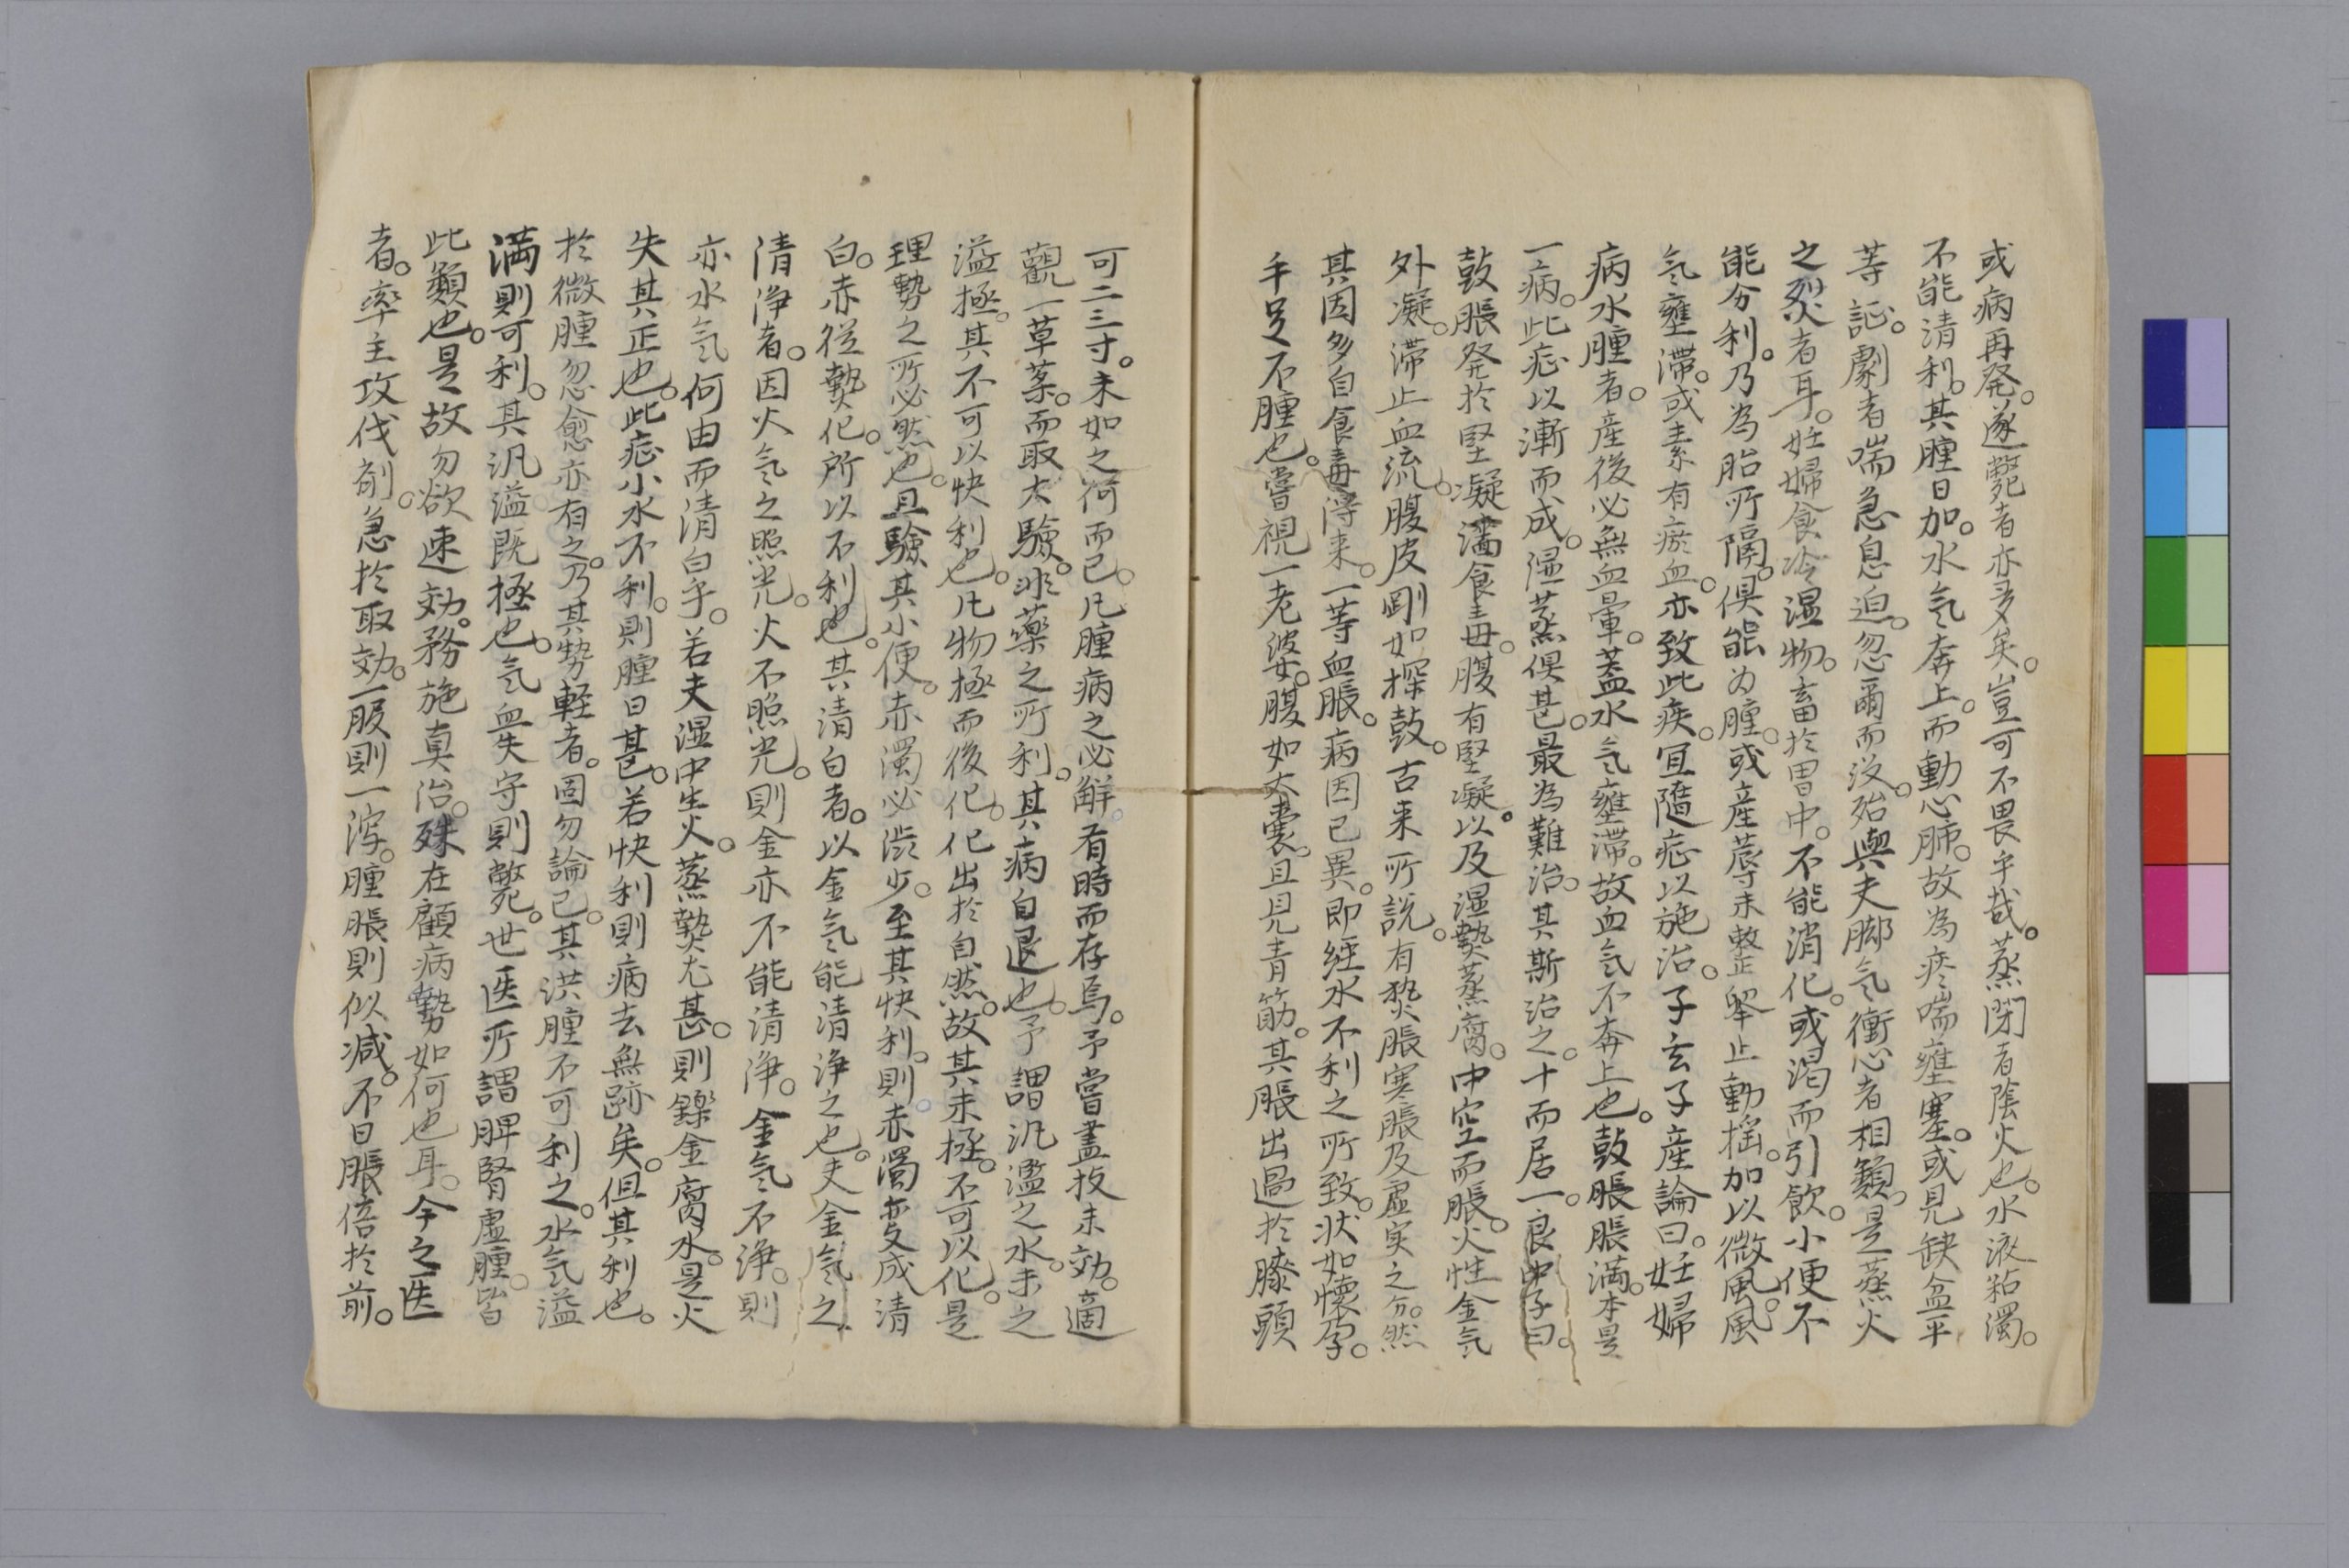 或病再発。遂斃者亦多矣。豈可不畏乎哉。蒸閉者陰火也。水液粘濁。
不能清利。其腫日加。水気奔上。而動心肺。故為痰喘壅塞。或見缺盆平
等証。劇者喘急息迫。忽爾而没。殆與夫脚気衝心者相類。是蒸火
之烈者耳。妊婦食冷湿物。畜於胃中。不能消化。或渇而引飲。小便不
能分利。乃為胎所隔。倶能為腫。或産蓐未整。挙止動揺。加以微風。風
気壅滞。或素有瘀血。亦致此疾。宜隨症以施治。子玄子産論曰。妊婦
病水腫者。産後必無血暈。蓋水気壅滞。故血気不奔上也。鼓脹脹満。本是
一病。此症以漸而成。湿蒸倶甚。最為難治。其斯治之。十而居一。良中子曰。
鼓脹発於堅凝瀦食毒。腹有堅凝。以及湿熱蒸腐。中空而脹。火性金気
外凝。滞止血流。腹皮剛如探鼓。古来所説。有熱脹寒脹及虚実之分。然
其因多自食毒得来。一等血脹。病因已異。即経水不利之所致。状如懐孕。
手足不腫也。嘗視一老婆。腹如大嚢。且見青筋。其脹出過於膝頭
可二三寸。未如之何而已。凡腫病之必解。有時而存焉。予嘗盡技未効。適
觀一草薬。而取太驗。非藥之所利。其病自退也。予謂汎濫之水。未之
溢極。其不可以快利也。凡物極而後化。化出於自然。故其未極。不可以化。是
理勢之所必然也。且驗其小便。赤濁必渋少。至其快利。則赤濁変成清
白。赤従熱化。所以不利也。其清白者。以金気能清浄之也。夫金気之
清浄者。因火気之照光。火不照光。則金亦不能清浄。金気不浄。則
亦水気何由而清白乎。若夫湿中生火。蒸熱尤甚。則鑠金腐水。是火
失其正也。此症小水不利。則腫日甚。若快利則病去無跡矣。但其利也。
於微腫忽愈亦有之。乃其勢軽者。固勿論已。其洪腫不可利之。水気溢
満則可利。其汎溢既極也。気血失守則斃。世医所謂脾腎虚腫。皆
此類也。是故勿欲速効。務施真治。殊在顧病勢如何也耳。今之医
者。率主攻伐剤。急於取効。一服則一瀉。腫脹則似減。不日脹倍於前。